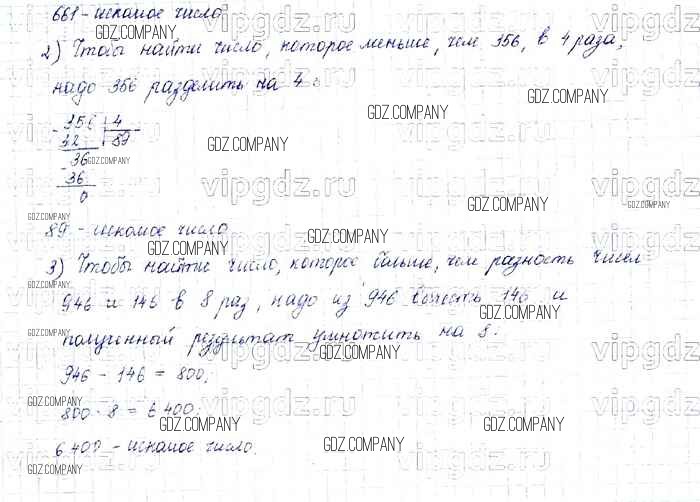 661 - искомое число.
2) Чтобы найти число, которое меньше, чем 356, в 4 раза,
надо 356 разделить на 4:
- 356 | 4
32 | 89
- 36
36
0
89 - искомое число.
3) Чтобы найти число, которое больше, чем разность чисел
946 и 146 в 8 раз, надо из 946 вычесть 146 и
полученный результат умножить на 8:
946 - 146 = 800;
800 · 8 = 6 400;
6 400 - искомое число.
vipgdz.ru
GDZ.COMPANY